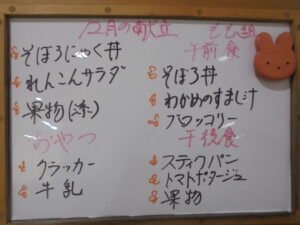 12月の献立
そぼろにゃく丼
れんこんサラダ
果物
おやつ
クラッカー
牛乳
もも組
午前食
そぼろ丼
わかめのすまし汁
ブロッコリー
午後食
スティックパン
トマトポタージュ
果物